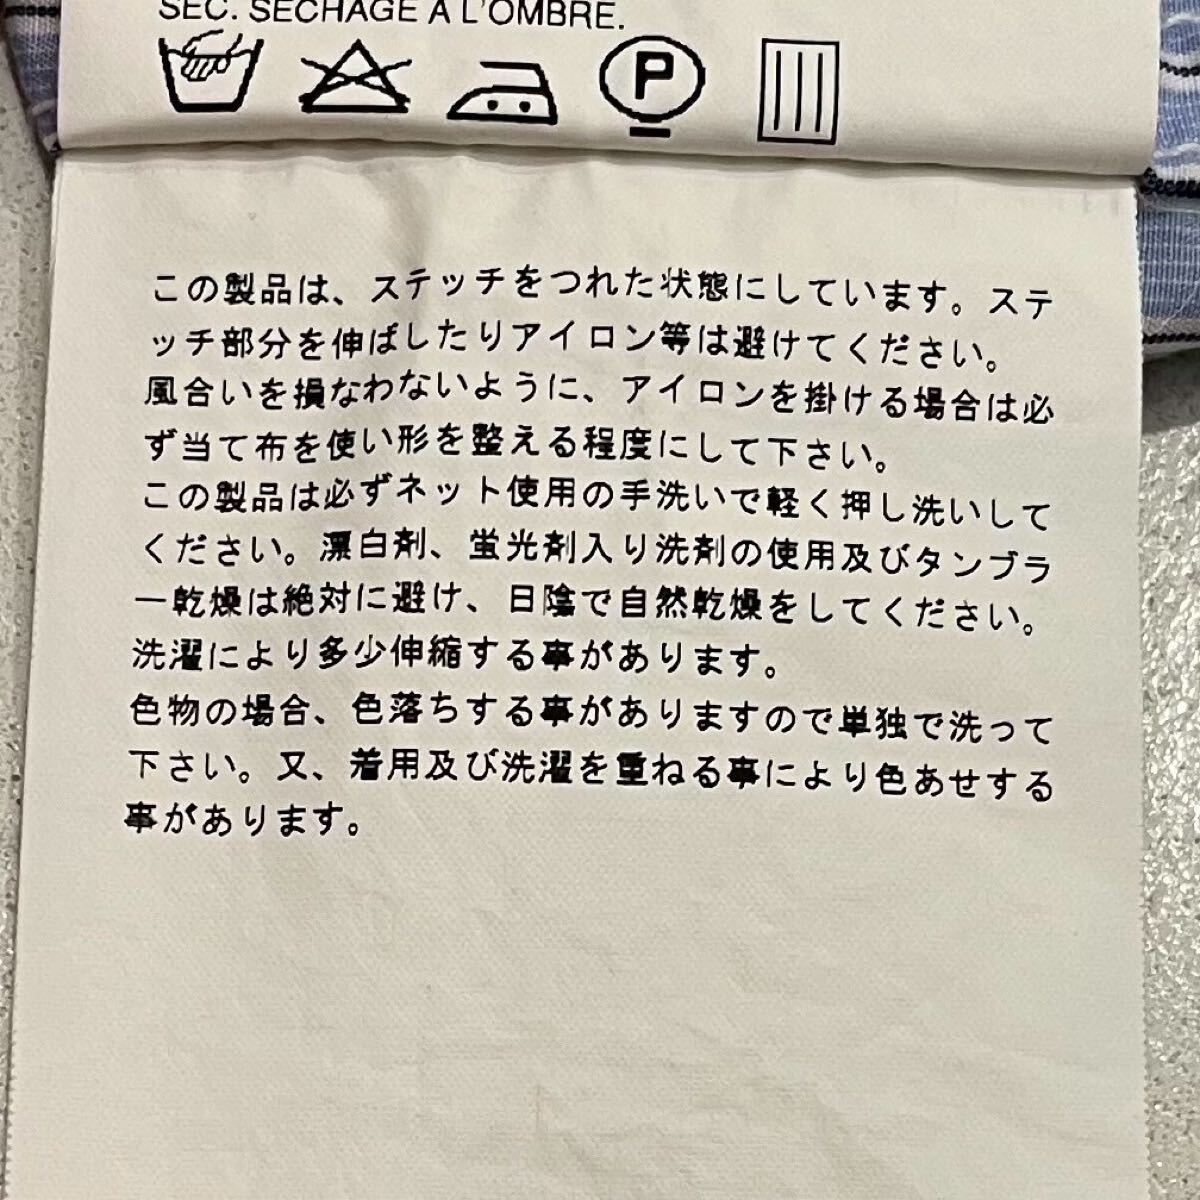 SEC. SECHAGE A L'OMBRE.
P
この製品は、ステッチをつれた状態にしています。ステ
ッチ部分を伸ばしたりアイロン等は避けてください。
風合いを損なわないように、アイロンを掛ける場合は必
ず当て布を使い形を整える程度にして下さい。
この製品は必ずネット使用の手洗いで軽く押し洗いして
ください。漂白剤、蛍光剤入り洗剤の使用及びタンブラ
ー乾燥は絶対に避け、日陰で自然乾燥をしてください。
洗濯により多少伸縮する事があります。
色物の場合、色落ちする事がありますので単独で洗って
下さい。又、着用及び洗濯を重ねる事により色あせする
事があります。